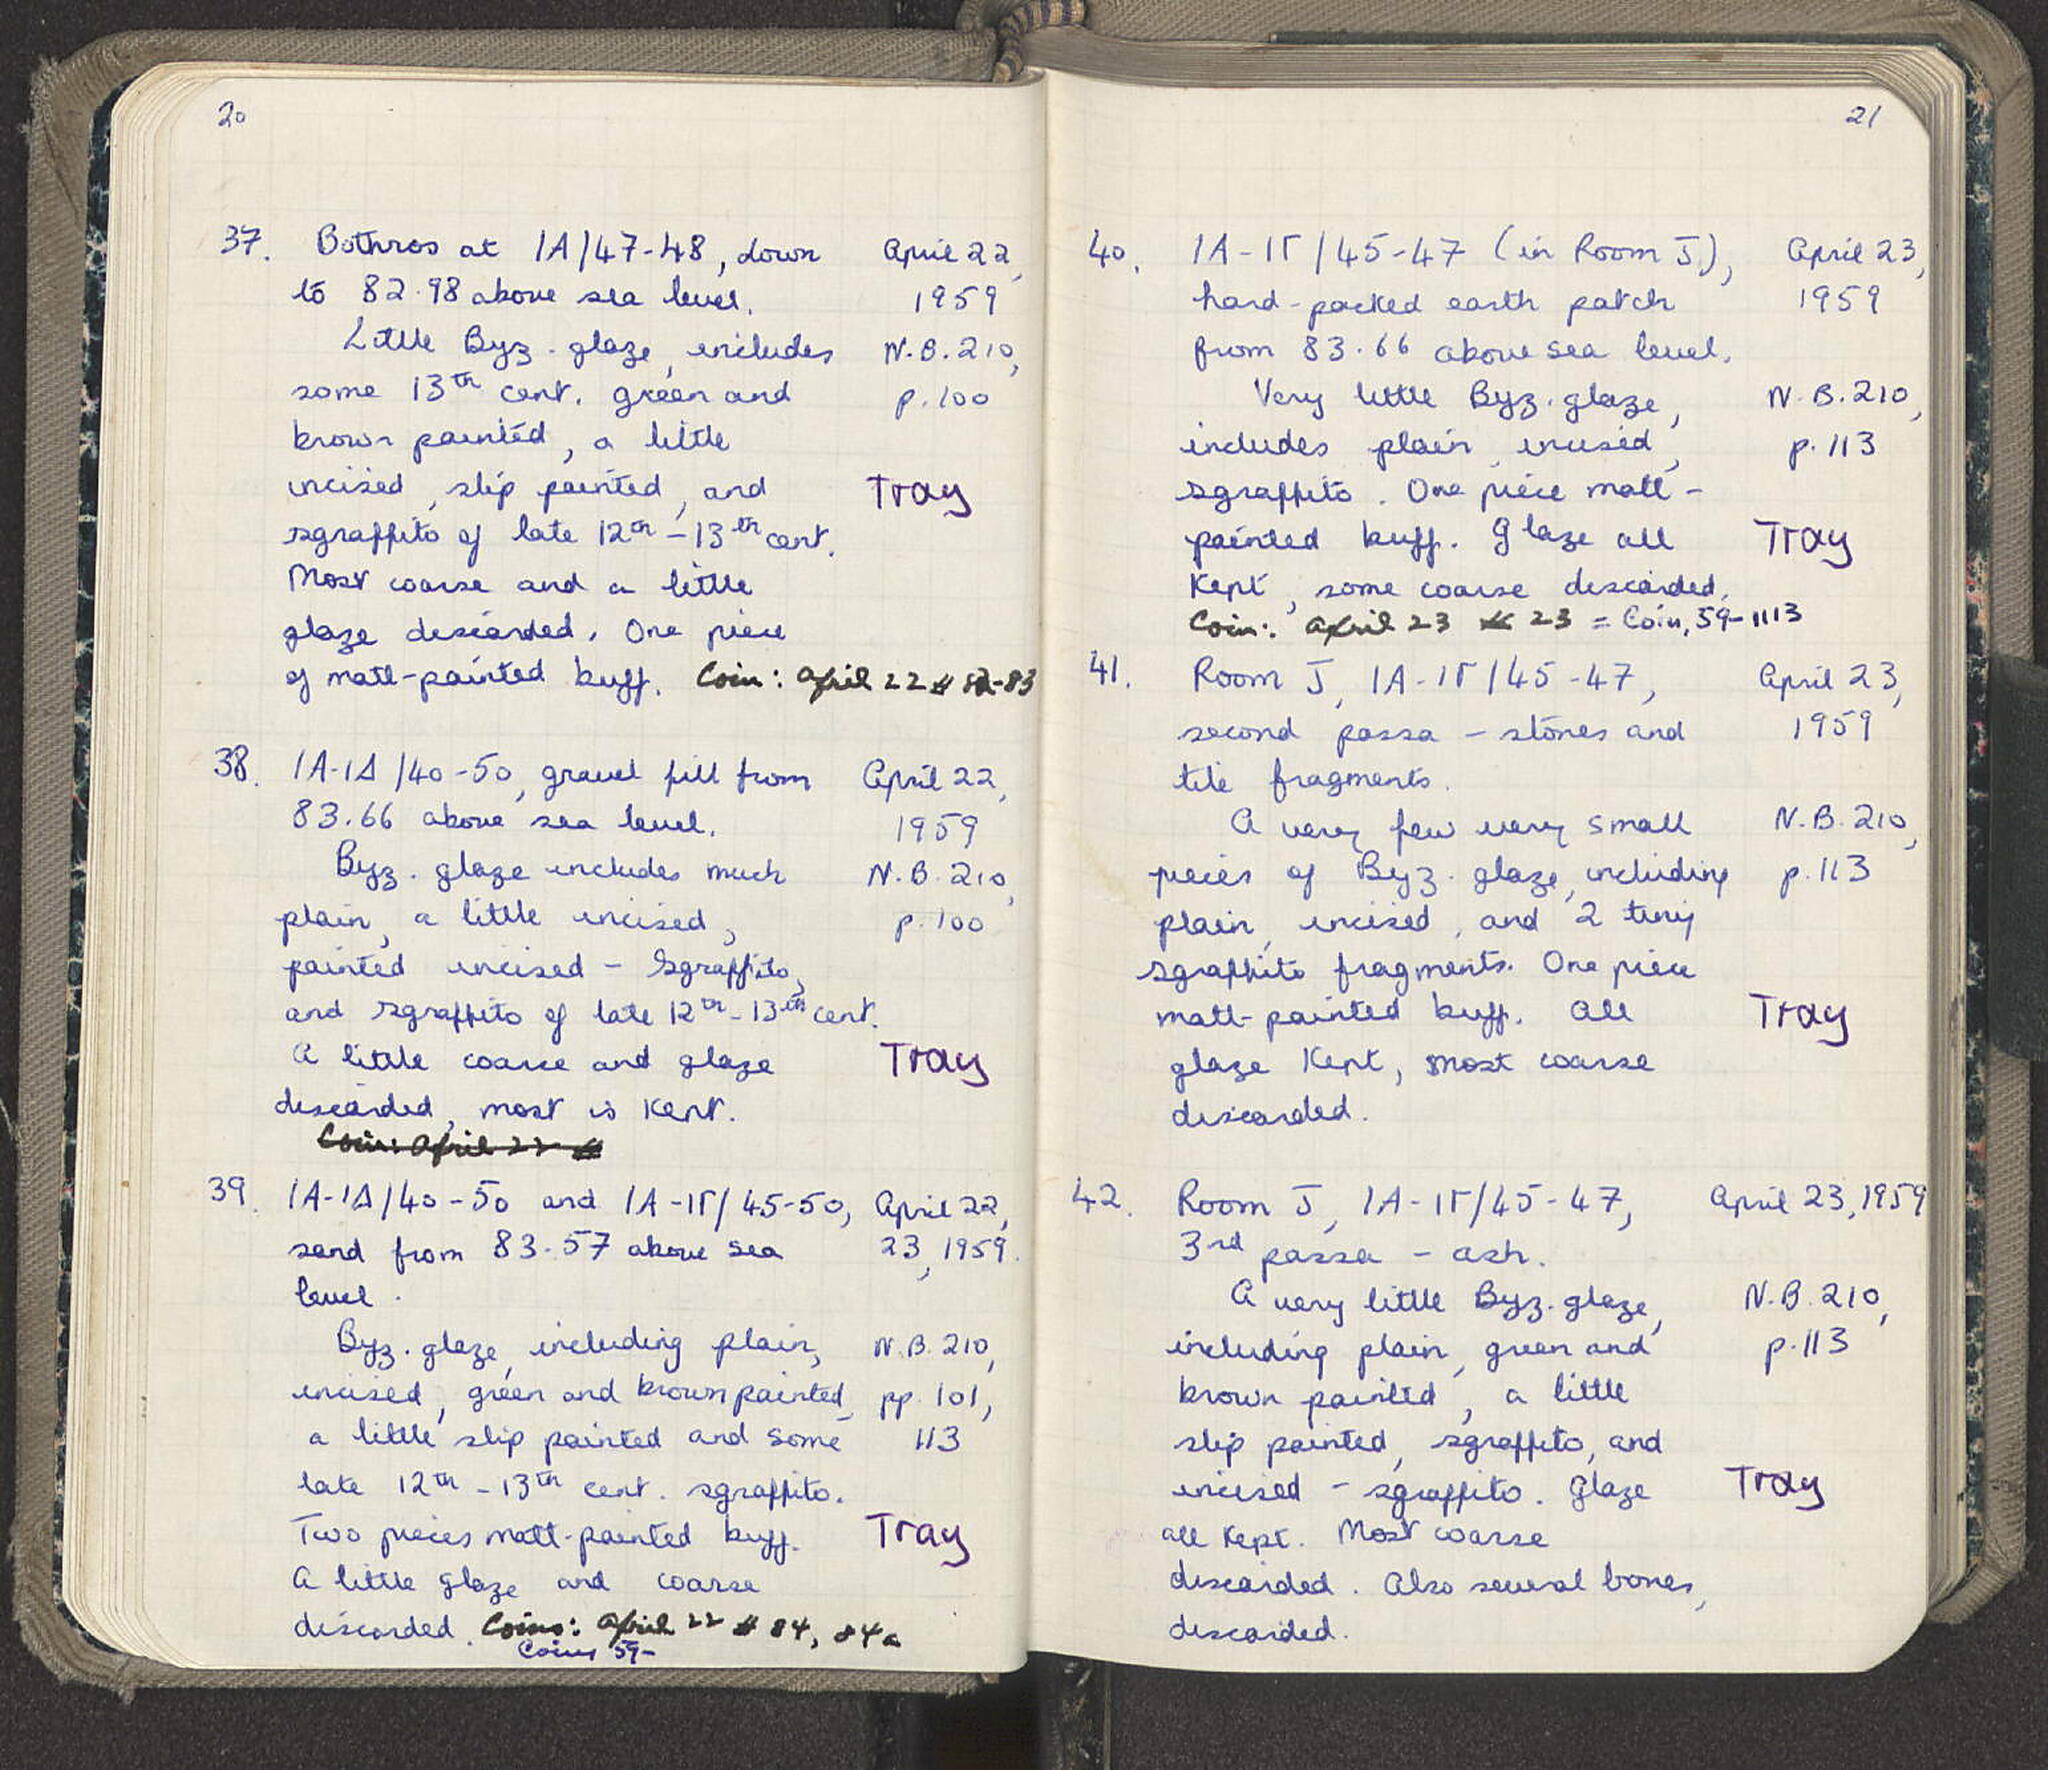 20
37. Bothros at 1A/47-48, down April 22,
to 82.98 above sea level. 1959
Little Byz. glaze, includes N.B. 210,
some 13th cent. green and p. 100
brown painted, a little
incised, slip painted, and Tray
sgraffito of late 12th - 13th cent.
Most coarse and a little
glaze discarded. One piece
of matt-painted buff. Coin: April 22 # 82-83
38. 1A-1Δ/40-50, gravel fill from April 22,
83.66 above sea level. 1959
Byz. glaze includes much N.B. 210,
plain, a little incised, p. 100
painted incised - sgraffito,
and sgraffito of late 12th - 13th cent.
A little coarse and glaze Tray
discarded, most is kept.
Coin: April 22 #
39. 1A-1Δ/40-50 and 1A-1Γ/45-50, April 22,
sand from 83.57 above sea 23, 1959.
level.
Byz. glaze, including plain, N.B. 210,
incised, green and brown painted, pp. 101,
a little slip painted and some 113
late 12th - 13th cent. sgraffito.
Two pieces matt-painted buff. Tray
A little glaze and coarse
discarded. Coins: April 22 # 84, 84a
Coins 59-
21
40. 1A-1Γ/45-47 (in Room J), April 23,
hard-packed earth patch 1959
from 83.66 above sea level.
Very little Byz. glaze, N.B. 210,
includes plain, incised, p. 113
sgraffito. One piece matt-
painted buff. Glaze all Tray
kept, some coarse discarded.
Coin: April 23 # 23 = Coin, 59-1113
41. Room J, 1A-1Γ/45-47, April 23,
second passa - stones and 1959
tile fragments.
A very few very small N.B. 210,
pieces of Byz. glaze, including p. 113
plain, incised, and 2 tiny
sgraffito fragments. One piece
matt-painted buff. All Tray
glaze kept, most coarse
discarded.
42. Room J, 1A-1Γ/45-47, April 23, 1959
3rd passa - ash.
A very little Byz. glaze, N.B. 210,
including plain, green and p. 113
brown painted, a little
slip painted, sgraffito, and
incised - sgraffito. Glaze Tray
all kept. Most coarse
discarded. Also several bones,
discarded.